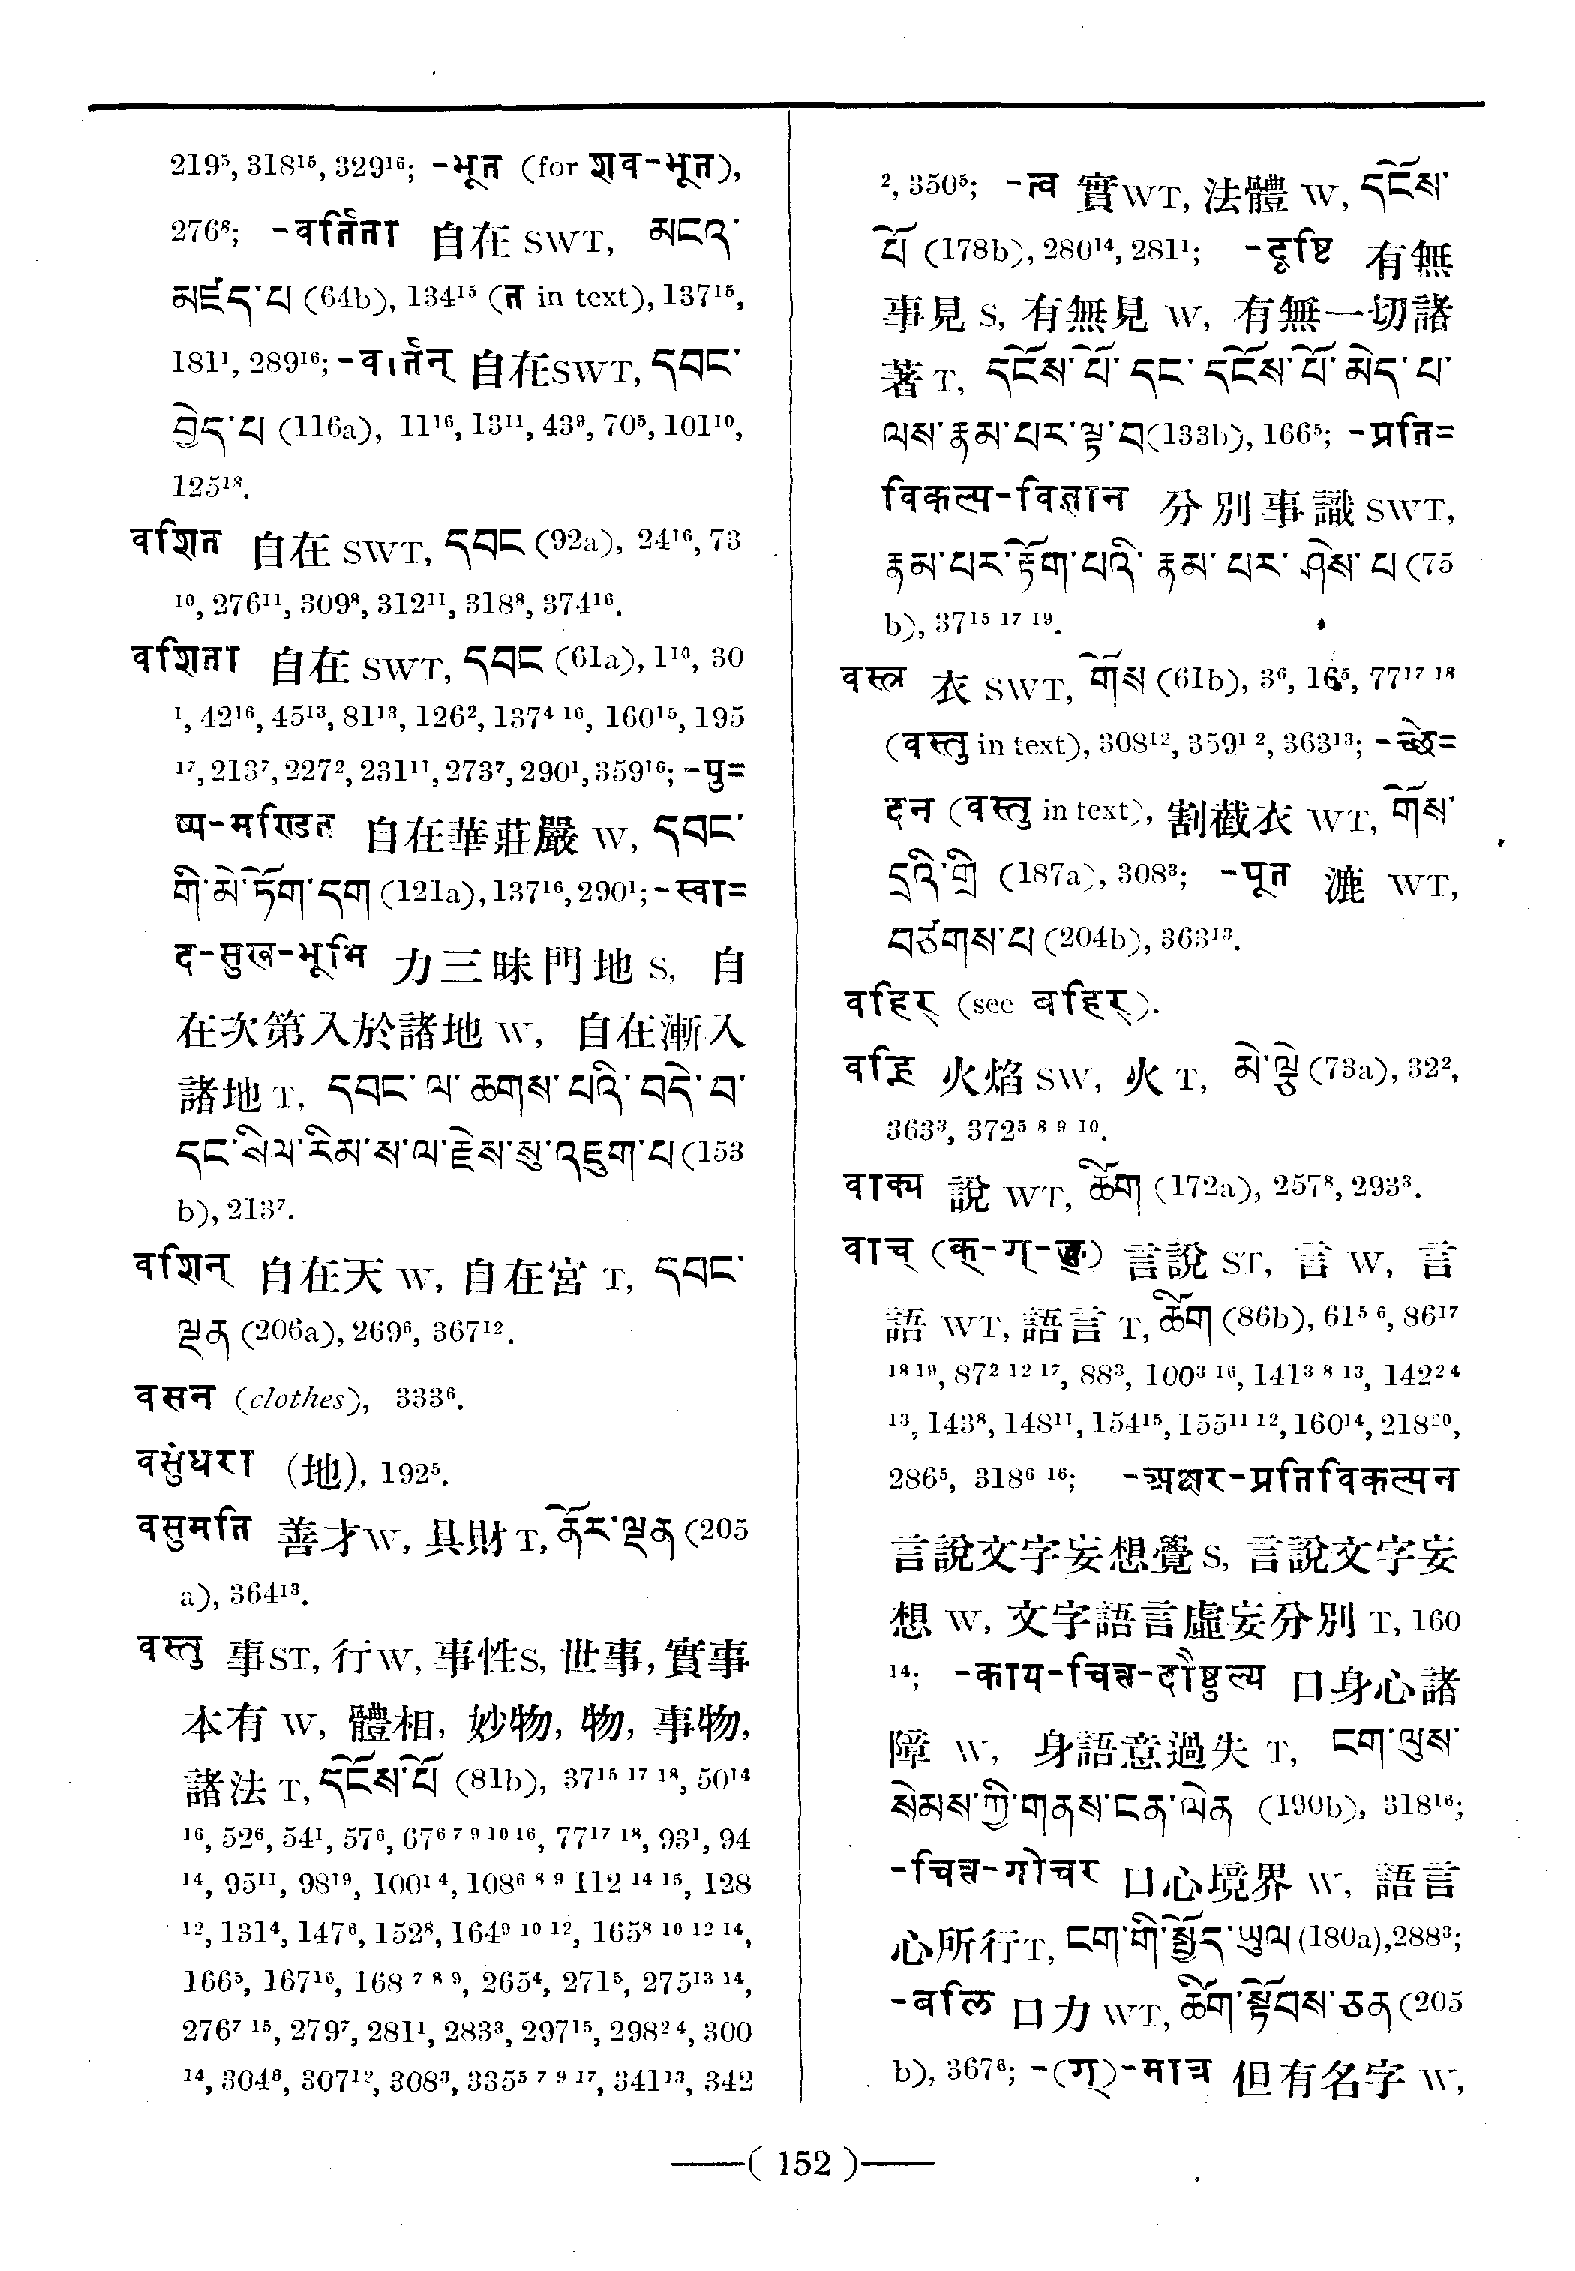 219⁵, 318¹⁵, 329¹⁶; -भूत (for शव-भूत),
276⁸; -वर्तिता 自在 SWT, མངའ་
མཛད་པ (64b), 134¹⁵ (त in text), 137¹⁵,
181¹, 289¹⁶; -वर्तिन् 自在SWT, དབང་
བྱེད་པ (116a), 11¹⁶, 13¹¹, 43⁹, 70⁵, 101¹⁰,
125¹⁸.
वशित 自在 SWT, དབང (92a), 24¹⁶, 73
¹⁰, 276¹¹, 309⁸, 312¹¹, 318⁸, 374¹⁶.
वशिता 自在 SWT, དབང (61a), 1¹⁰, 30
¹, 42¹⁶, 45¹³, 81¹³, 126², 137⁴ ¹⁶, 160¹⁵, 195
¹⁷, 213⁷, 227², 231¹¹, 273⁷, 290¹, 359¹⁶; -पु=
ष्प-मण्डित 自在華莊嚴 W, དབང་
གི་མེ་ཏོག་དག (121a), 137¹⁶, 290¹; -स्वा=
द-सुख-भूमि 力三昧門地 S, 自
在次第入於諸地 W, 自在漸入
諸地 T, དབང་ལ་ཆགས་པའི་བདེ་བ་
དང་སིལ་རིམ་ས་ལ་རྗེས་སུ་འཇུག་པ (153
b), 213⁷.
वशिन् 自在天 W, 自在宮 T, དབང་
ལྡན (206a), 269⁶, 367¹².
वसन (clothes), 333⁶.
वसुंधरा (地), 192⁵.
वसुमति 善才W, 具財 T, ནོར་ལྡན (205
a), 364¹³.
वस्तु 事ST, 行W, 事性S, 世事, 實事
本有 W, 體相, 妙物, 物, 事物,
諸法 T, དངོས་པོ (81b), 37¹⁵ ¹⁷ ¹⁸, 50¹⁴
¹⁶, 52⁶, 54¹, 57⁶, 67⁶ ⁷ ⁹ ¹⁰ ¹⁶, 77¹⁷ ¹⁸, 93¹, 94
¹⁴, 95¹¹, 98¹⁹, 100¹ ⁴, 108⁶ ⁸ ⁹ 112 ¹⁴ ¹⁵, 128
¹², 131⁴, 147⁶, 152⁸, 164⁹ ¹⁰ ¹², 165⁸ ¹⁰ ¹² ¹⁴,
166⁵, 167¹⁶, 168 ⁷ ⁸ ⁹, 265⁴, 271⁵, 275¹³ ¹⁴,
276⁷ ¹⁵, 279⁷, 281¹, 283³, 297¹⁵, 298² ⁴, 300
¹⁴, 304⁸, 307¹², 308³, 335⁵ ⁷ ⁹ ¹⁷, 341¹³, 342
², 350⁵; -त्व 實WT, 法體 W, དངོས་
པོ (178b), 280¹⁴, 281¹; -दृष्टि 有無
事見 S, 有無見 W, 有無一切諸
著 T, དངོས་པོ་དང་དངོས་པོ་མེད་པ་
ལས་རྣམ་པར་ལྟ་བ(133b), 166⁵; -प्रति=
विकल्प-विज्ञान 分別事識 SWT,
རྣམ་པར་རྟོག་པའི་རྣམ་པར་ཤེས་པ (75
b), 37¹⁵ ¹⁷ ¹⁹.
वस्त्र 衣 SWT, གོས (61b), 3⁶, 16⁵, 77¹⁷ ¹⁸
(वस्तु in text), 308¹², 359¹ ², 363¹³; -च्छे=
दन (वस्तु in text), 割截衣 WT, གོས་
དྲའི་གྲི (187a), 308³; -पूत 漉 WT,
བཙགས་པ (204b), 363¹³.
वहिर् (see बहिर्).
वह्नि 火焰 SW, 火 T, མེ་ལྕེ (73a), 32²,
363³, 372⁵ ⁸ ⁹ ¹⁰.
वाक्य 說 WT, ཚིག (172a), 257⁸, 293³.
वाच् (क्-ग्-ङ्) 言說 ST, 言 W, 言
語 WT, 語言 T, ཚིག (86b), 61⁵ ⁶, 86¹⁷
¹⁸ ¹⁹, 87² ¹² ¹⁷, 88³, 100³ ¹⁶, 141³ ⁸ ¹³, 142² ⁴
¹³, 143⁸, 148¹¹, 154¹⁵, 155¹¹ ¹², 160¹⁴, 218²⁰,
286⁵, 318⁶ ¹⁶; -अक्षर-प्रतिविकल्पन
言說文字妄想覺 S, 言說文字妄
想 W, 文字語言虛妄分別 T, 160
¹⁴; -काय-चित्त-दौष्ठुल्य 口身心諸
障 W, 身語意過失 T, ངག་ལུས་
སེམས་ཀྱི་གནས་ངན་ལེན (190b), 318¹⁶;
-चित्त-गोचर 口心境界 W, 語言
心所行T, ངག་གི་སྤྱོད་ཡུལ (180a), 288³;
-वलि 口力 WT, ཚིག་སྟོབས་ཅན (205
b), 367⁶; -(ग्)-मात्र 但有名字 W,
—( 152 )—